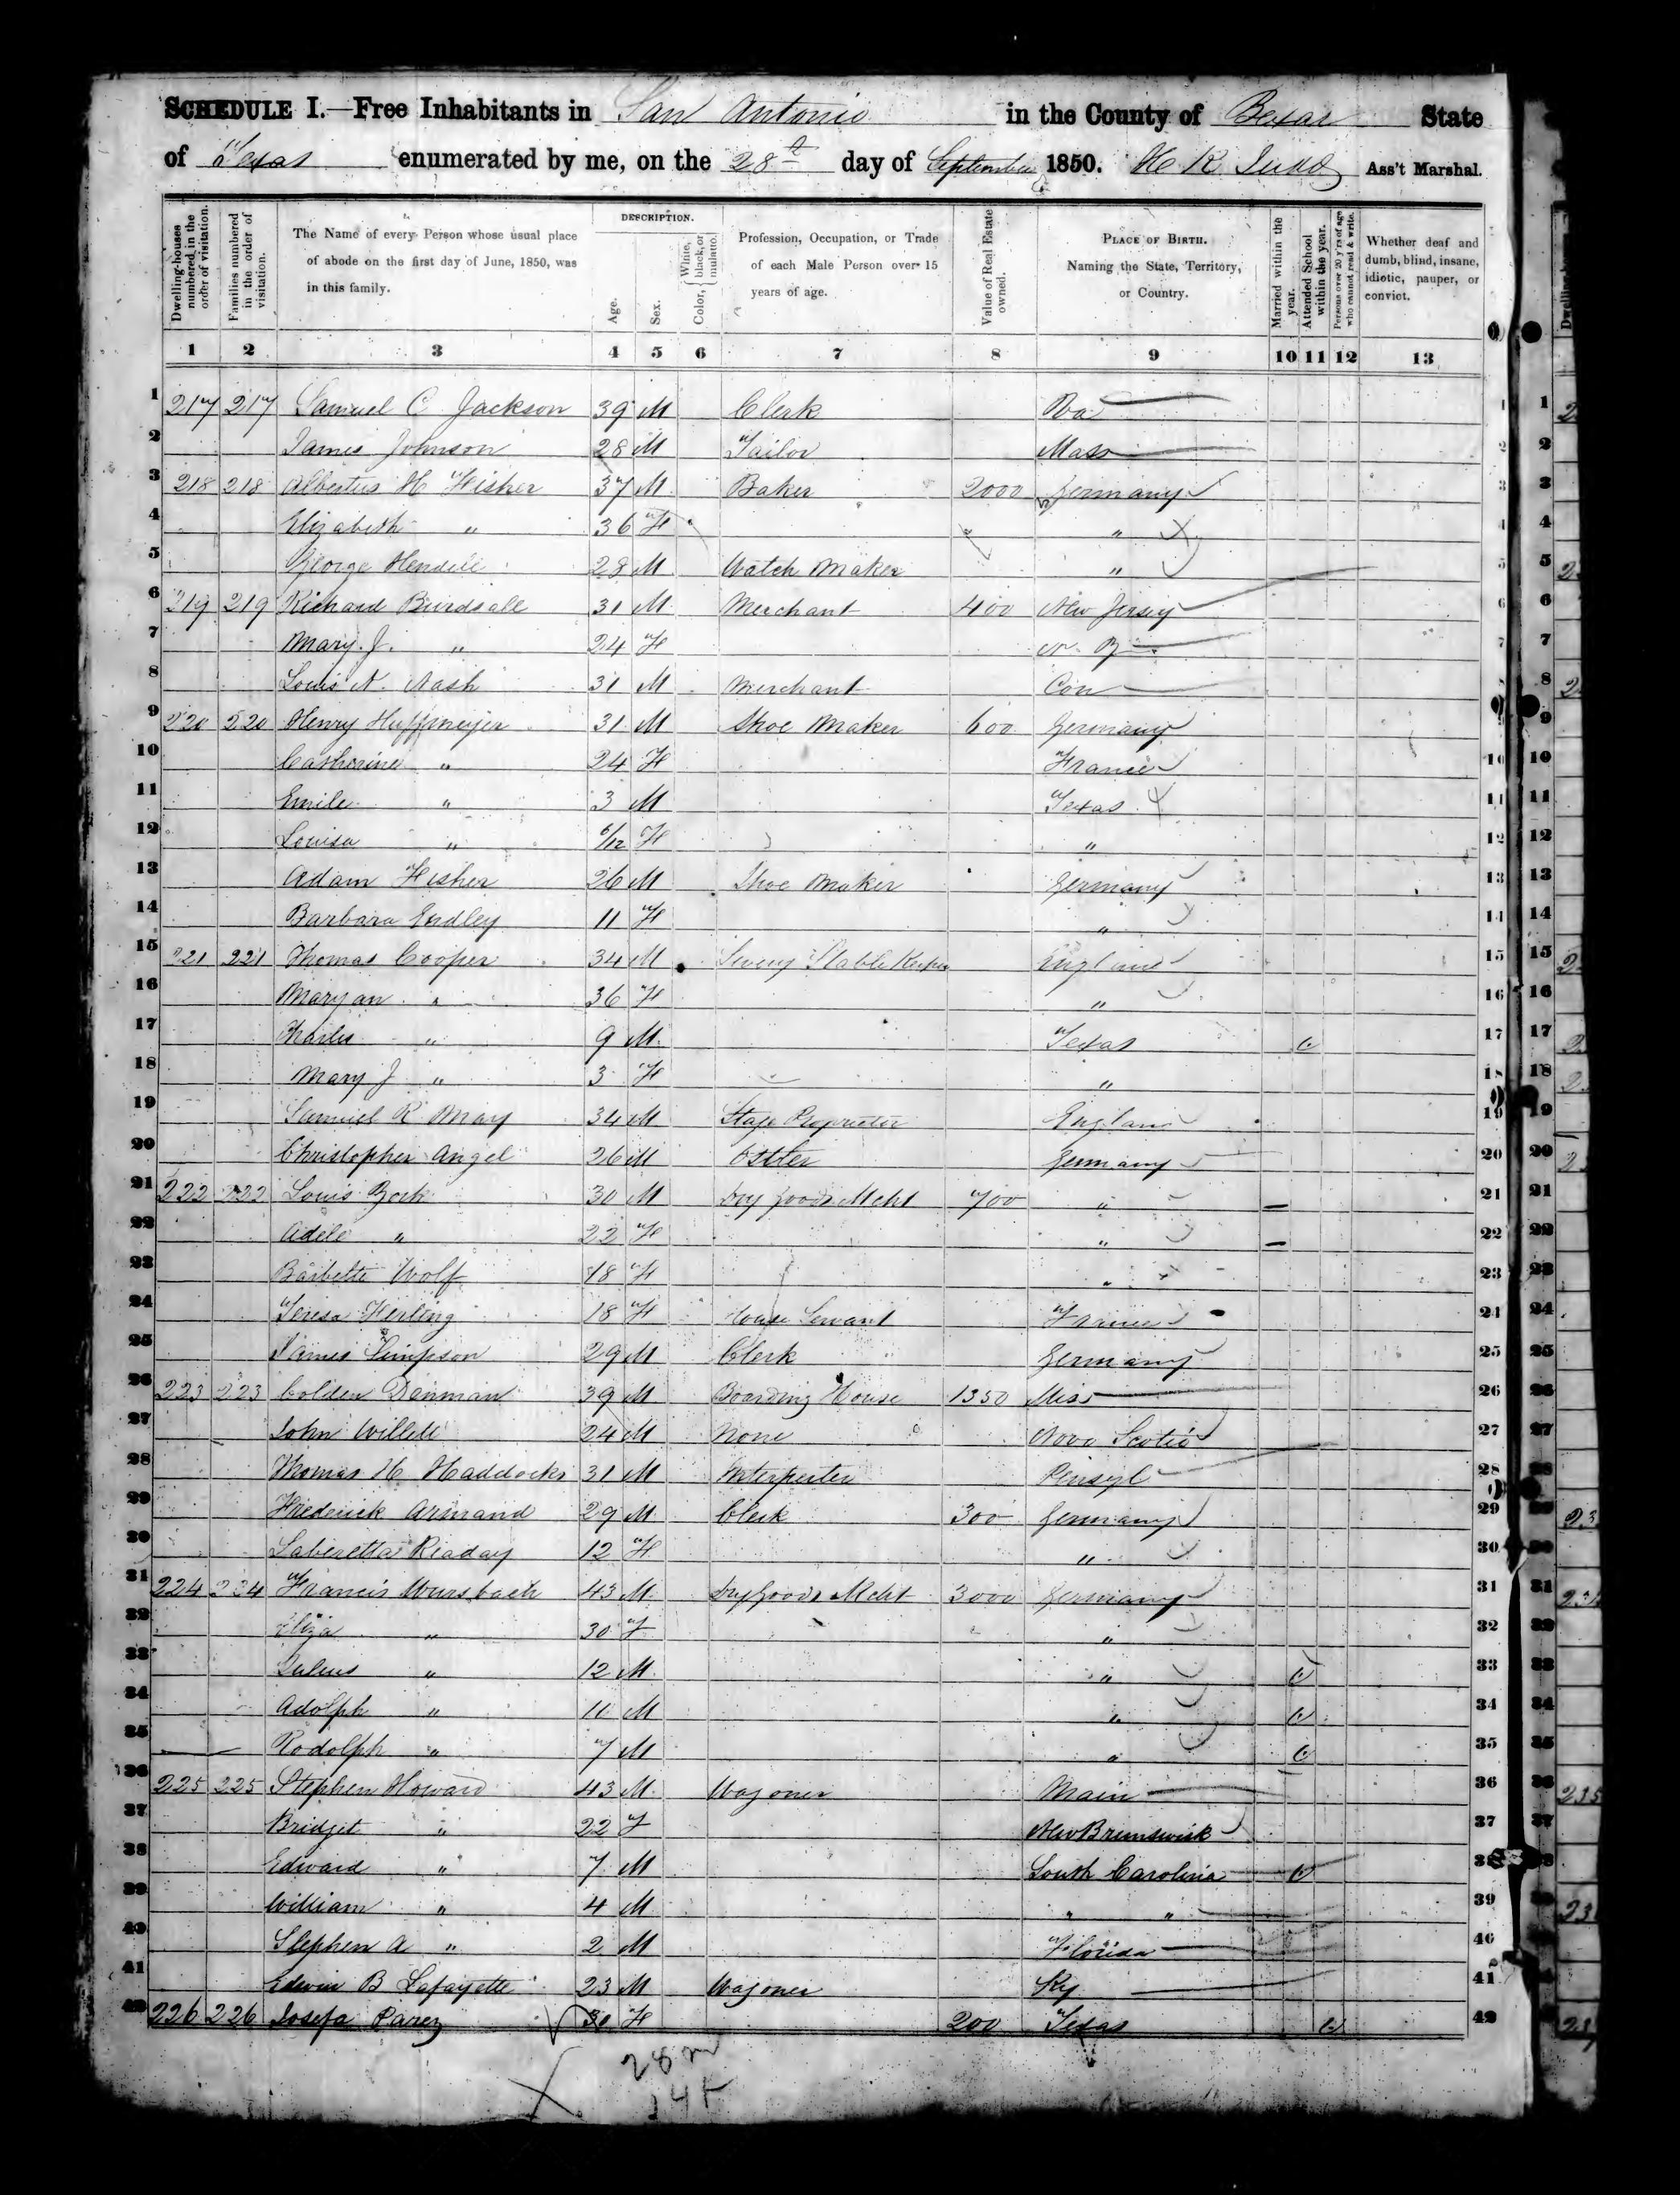 SCHEDULE I.—Free Inhabitants in San Antonio in the County of Bexar State
of Texas enumerated by me, on the 28th day of September 1850. H K Judd Ass't Marshal.
Dwelling-houses numbered in the order of visitation.
Families numbered in the order of visitation.
The Name of every Person whose usual place of abode on the first day of June, 1850, was in this family.
DESCRIPTION.
Age.
Sex.
Color, { White, black, or mulatto.
Profession, Occupation, or Trade of each Male Person over 15 years of age.
Value of Real Estate owned.
PLACE OF BIRTH. Naming the State, Territory, or Country.
Married within the year.
Attended School within the year.
Persons over 20 y'rs of age who cannot read & write.
Whether deaf and dumb, blind, insane, idiotic, pauper, or convict.
1 2 3 4 5 6 7 8 9 10 11 12 13
1 217 217 Samuel C Jackson 39 M Clerk 1
2 James Johnson 28 M Tailor Mass 2
3 218 218 Albertus H Fisher 37 M Baker 2000 Germany 3
4 Elizabeth " 36 F " 4
5 George 28 M Watch Maker " 5
6 219 219 Richard Burdsall 31 M Merchant 400 New Jersey 6
7 Mary J. " 24 F 7
8 Louis N. Nash 31 M Merchant Con 8
9 220 220 Henry Huffmeyer 31 M Shoe Maker 600 Germany 9
10 Catherine " 24 F France 10
11 Emile " 3 M Texas 11
12 Louisa " 6/12 F " 12
13 Adam Fisher 26 M Shoe Maker Germany 13
14 Barbara Endley 11 F " 14
15 221 221 Thomas Cooper 34 M Livery Stable Keeper England 15
16 Mary an " 36 F " 16
17 Charles " 9 M Texas 17
18 Mary J " 3 F " 18
19 Samuel R May 34 M Stage Proprietor England 19
20 Christopher Angel 26 M Ostler Germany 20
21 222 222 Louis Zork 30 M Dry goods Mcht 700 " 21
22 Adele " 22 F " 22
23 Barbette Wolf 18 F " 23
24 Teresa Ferling 18 F House Servant France 24
25 James Simpson 29 M Clerk Germany 25
26 223 223 Colden Denman 39 M Boarding House 1350 Miss 26
27 John 24 M None Nova Scotia 27
28 Thomas H Haddocks 31 M Interpreter Pensyl 28
29 Frederick Armand 29 M Clerk 300 Germany 29
30 12 F " 30
31 224 224 Francis Wursbach 43 M Dry goods Mcht 3000 Germany 31
32 Eliza " 30 F " 32
33 Julius " 12 M " 33
34 Adolph " 11 M " 34
35 Rodolph " 7 M " 35
36 225 225 Stephen Howard 43 M Wagoner Main 36
37 Bridget " 22 F New Brunswick 37
38 Edward " 7 M South Carolina 38
39 William " 4 M " " 39
40 Stephen A " 2 M Florida 40
41 Edwin B Lafayette 23 M Wagoner Ky 41
42 226 226 Josefa Parez 30 F 200 Texas 42
28 m
14 F